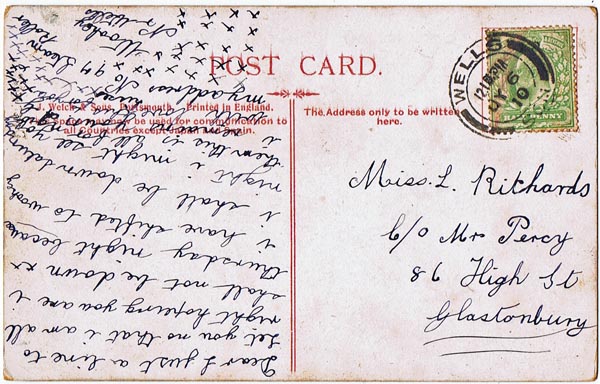 POST CARD.
J. Welch & Sons, Portsmouth. Printed in England.
This space may be used for communication to
all Countries except Japan and Spain.
The Address only to be written
here.
WELLS
12 15 PM
JY 6
10
HALFPENNY
Miss. L. Rithards
C/o Mr Percy
86 High St
Glastonbury
Dear L just a line to
let you no that i am all
right hoping you are i
shall not be down
thursday night because
i have shifted to wookey
i shall be down saturd
night i might see you
then this is all
i
my address No 94 Steam
Roller
Wookey
Nr Wells
x x x x x x
x x x x x x
x x x x x